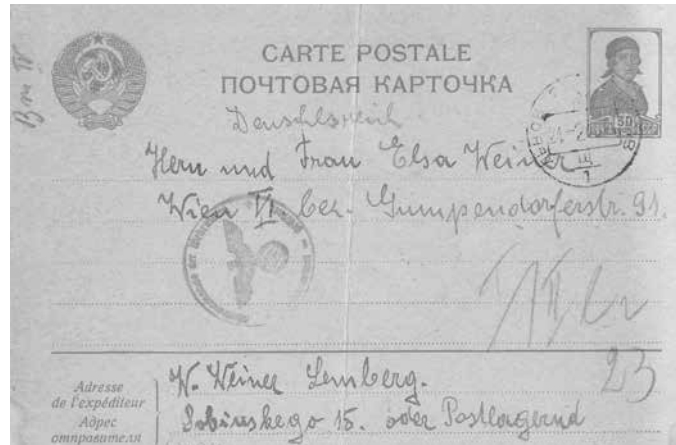 CARTE POSTALE
ПОЧТОВАЯ КАРТОЧКА
Herrn und Frau Elsa Weiner
Wien VI bez. Gumpendorferstr. 91.
23
Adresse
de l'expéditeur
Адрес
отправителя
W. Weiner Lemberg.
Sobieskego 15. oder Postlagernd